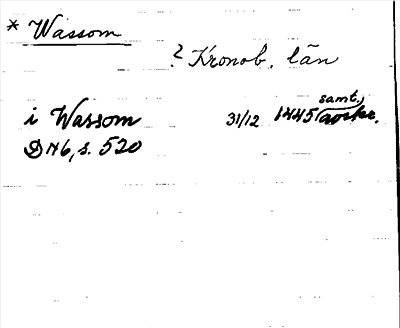 * Wassom
? Kronob. län
i Wassom 31/12 1445 samt. avskr.
DN 6, s. 520